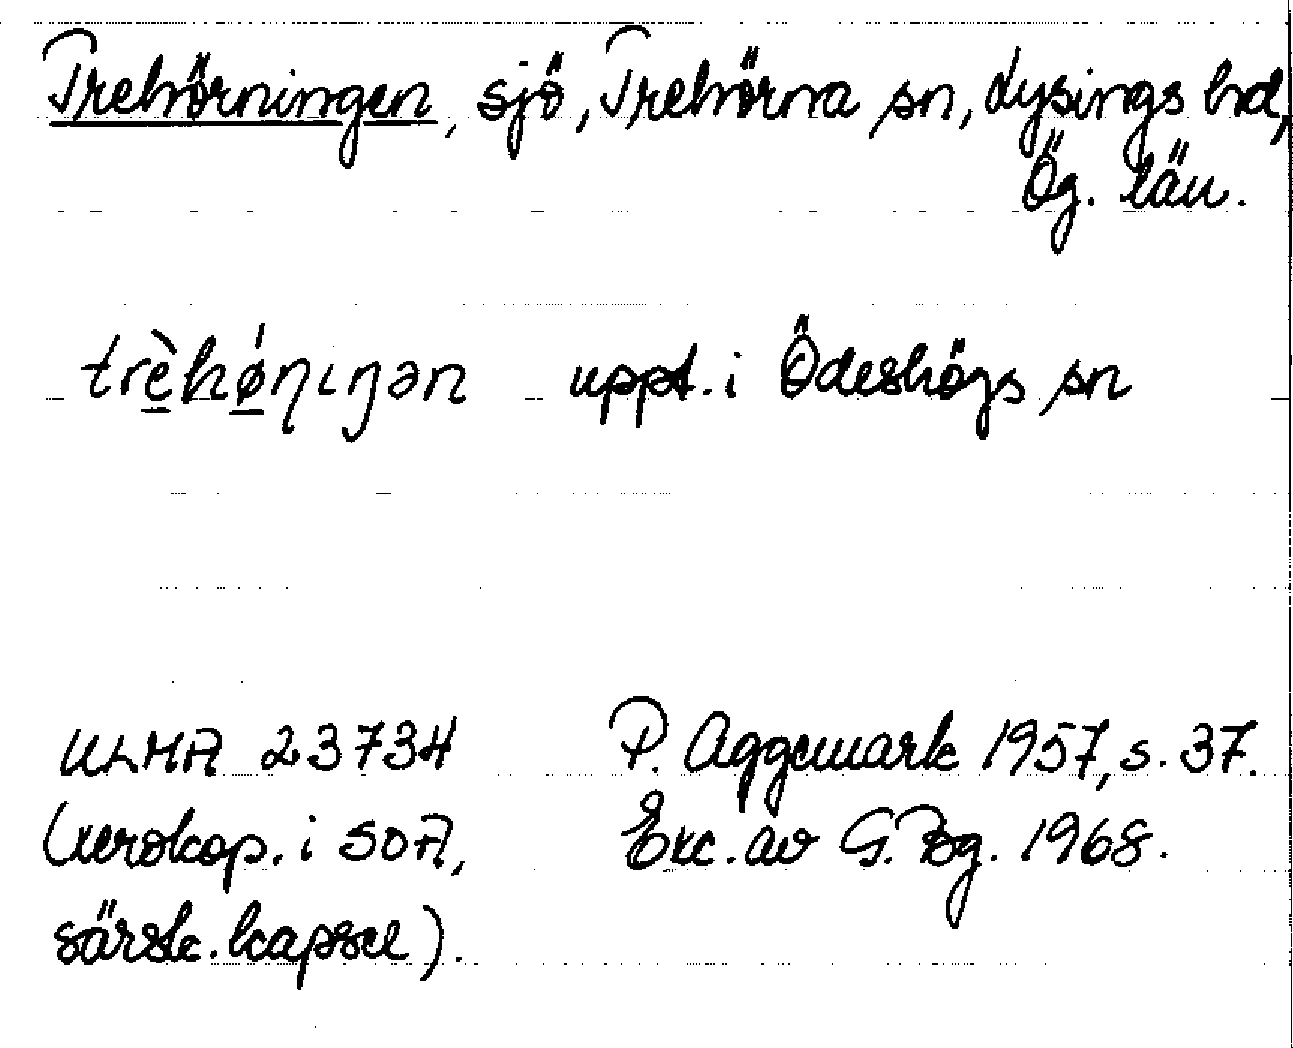 Trehörningen, sjö, Trehörna sn, Lysings hd,
Ög. län.
trèhǿɳɩŋən uppt. i Ödeshögs sn
ULMA 23734 P. Aggemark 1957, s. 37.
(xerokop. i SOA, Exc. av G. Bg. 1968.
särsk. kapsel).